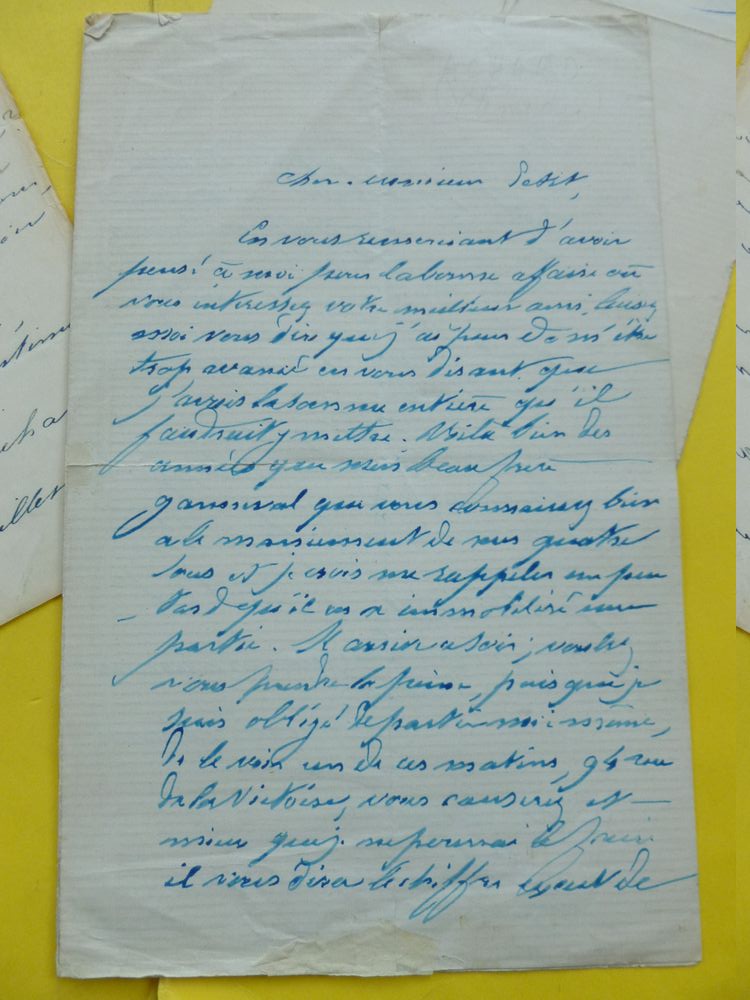 Cher Monsieur Petit,
En vous remerciant d'avoir
pensé à moi pour la bonne affaire où
vous intéressez votre meilleur ami, laissez
moi vous dire que j'ai peur de m'être
trop avancé en vous disant que
j'avais la somme entière qu'il
faudrait y mettre. Voilà bien des
années que mon beau frère
que vous connaissez bien
a le maniement de nos quatre
sous et je crois me rappeler un peu
tard qu'il en a immobilisé une
partie. Il arrive ce soir; voulez
vous prendre la peine, puisque je
suis obligé de partir moi-même,
de le voir un de ces matins, 94 rue
de la Victoire, vous causerez et
mieux que je ne pourrai le faire
il vous dira le chiffre exact de